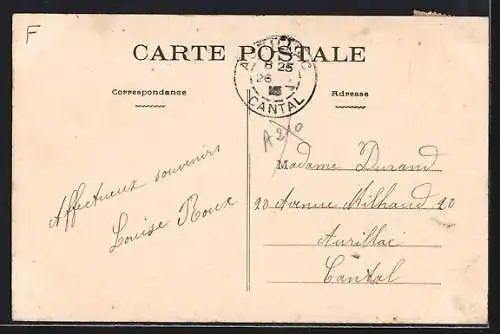 F
CARTE POSTALE
8 25
26
CANTAL
Correspondance
Adresse
A20
Affectueux souvenirs
Louise Roux
Madame Durand
20 Avenue Milhaud 20
Aurillac
Cantal